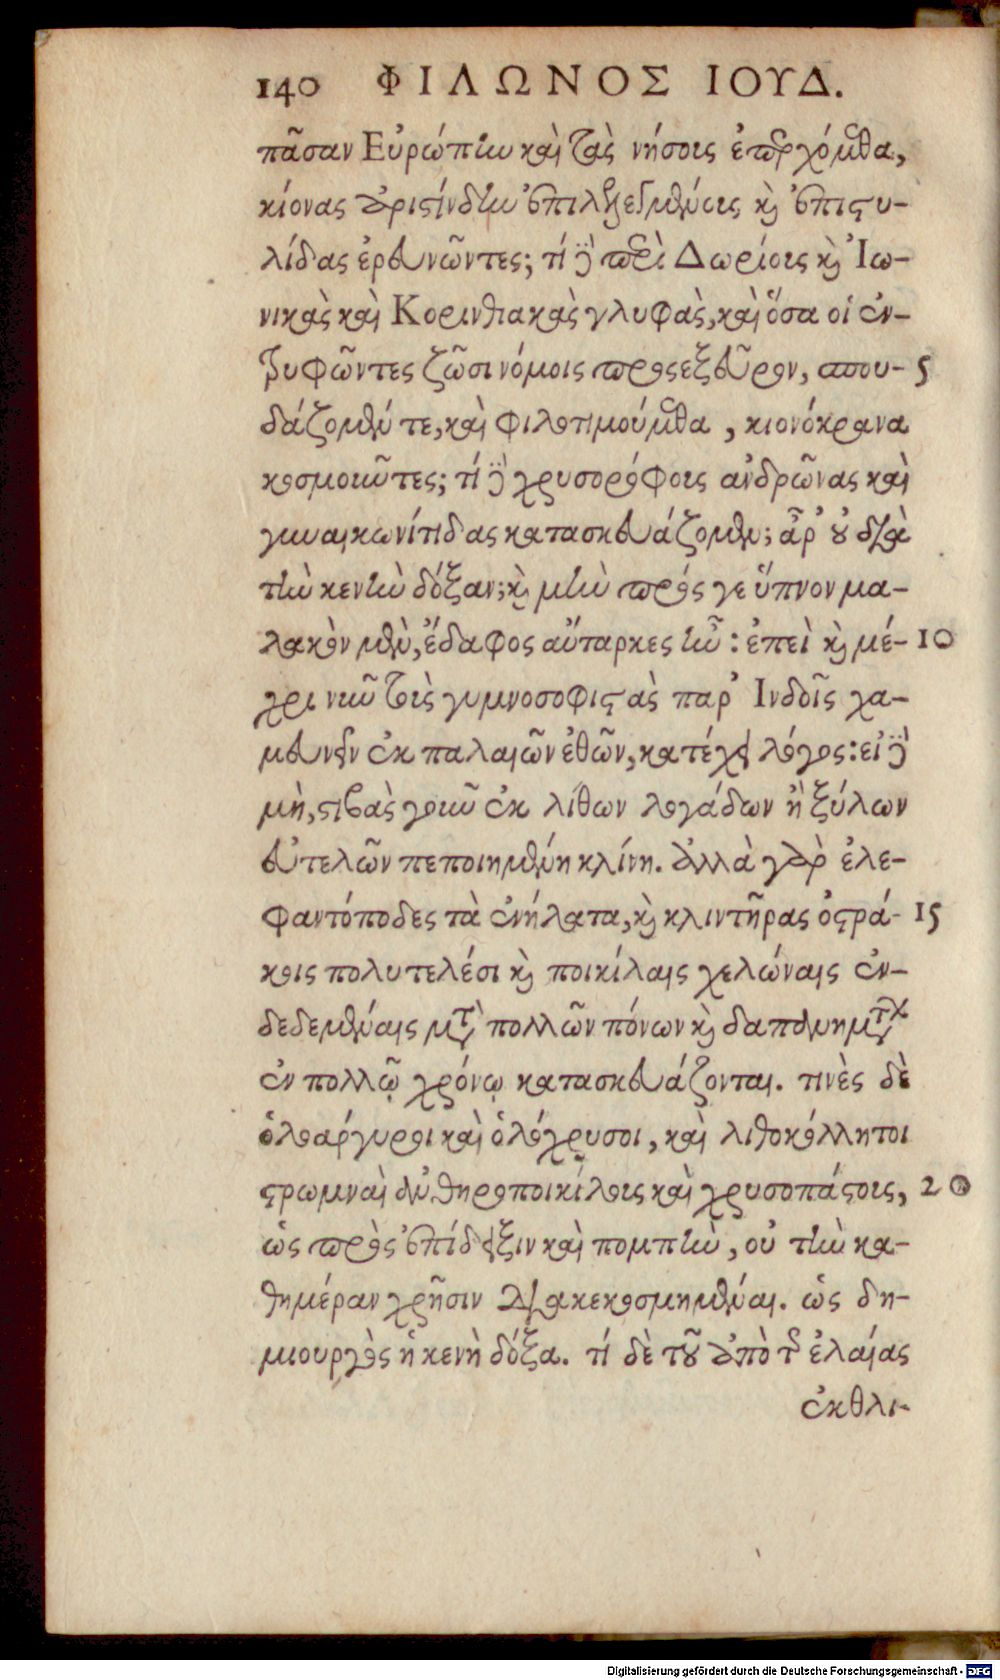 140 ΦΙΛΩΝΟΣ ΙΟΥΔ.
πᾶσαν Εὐρώπην καὶ τὰς νήσους ἐπερχόμεθα,
κίονας ἀριστίνδην ἐπιλελεγμένους καὶ ἐπιστυ-
λίδας ἐρευνῶντες; τί δὲ περὶ Δωρίους καὶ Ἰω-
νικὰς καὶ Κορινθιακὰς γλυφὰς, καὶ ὅσα οἱ ἐν-
τρυφῶντες ζῶσι νόμοις προσεξεῦρον, σπου- 5
δάζομέν τε, καὶ φιλοτιμούμεθα, κιονόκρανα
κοσμοιῶτες; τί δὲ χρυσορόφους ἀνδρῶνας καὶ
γυναικωνίτιδας κατασκευάζομεν; ἆρ' οὐ διὰ
τὴν κενὴν δόξαν; καὶ μὴν πρός γε ὕπνον μα-
λακὸν μὲν, ἔδαφος αὔταρκες ἦν: ἐπεὶ καὶ μέ- 10
χρι νῦν τοὺς γυμνοσοφιστὰς παρ' Ἰνδοῖς χα-
μευνεῖν ἐκ παλαιῶν ἐθῶν, κατέχει λόγος: εἰ δὲ
μὴ, στιβὰς γοῦν ἐκ λίθων λογάδων ἢ ξύλων
εὐτελῶν πεποιημένη κλίνη. ἀλλὰ γὰρ ἐλε-
φαντόποδες τὰ ἐνήλατα, καὶ κλιντῆρας ὀστρά- 15
κοις πολυτελέσι καὶ ποικίλαις χελώναις ἐν-
δεδεμέναις μετὰ πολλῶν πόνων καὶ δαπανημάτων
ἐν πολλῷ χρόνῳ κατασκευάζονται. τινὲς δὲ
ὁλοάργυροι καὶ ὁλόχρυσοι, καὶ λιθοκόλλητοι
στρωμναὶ εὐθηροποικίλοις καὶ χρυσοπάστοις, 20
ὡς πρὸς ἐπίδειξιν καὶ πομπὴν, οὐ τὴν κα-
θημέραν χρῆσιν διακεκοσμημέναι. ὡς δη-
μιουργὸς ἡ κενὴ δόξα. τί δὲ τοῦ ἀπὸ τῆς ἐλαίας
ἐκθλι-
Digitalisierung gefördert durch die Deutsche Forschungsgemeinschaft - DFG